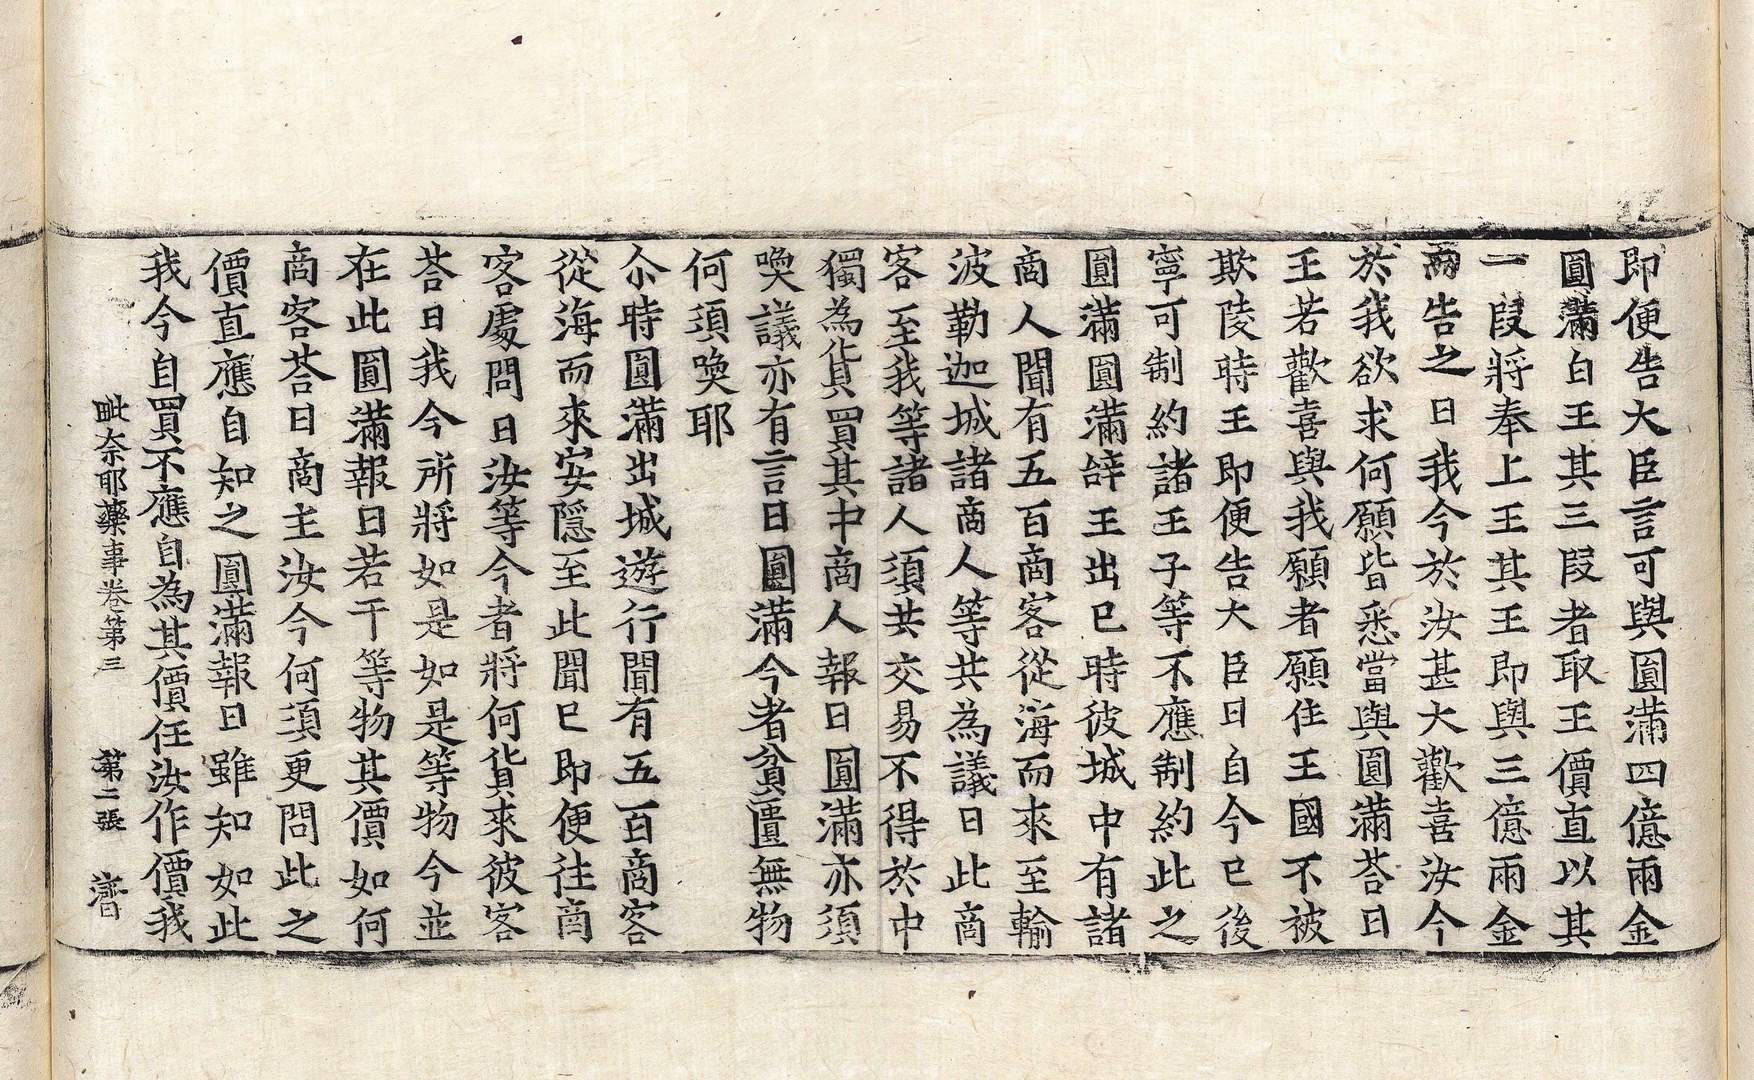 即便告大臣言可與圓滿四億兩金
圓滿白王其三段者取王價直以其
一段將奉上王其王即與三億兩金
而告之曰我今於汝甚大歡喜汝今
於我欲求何願皆悉當與圓滿荅曰
王若歡喜與我願者願住王國不被
欺陵時王即便告大臣曰自今已後
寧可制約諸王子等不應制約此之
圓滿圓滿辝王出已時彼城中有諸
商人聞有五百商客從海而來至輸
波勒迦城諸商人等共為議曰此商
客至我等諸人須共交易不得於中
獨為貨買其中商人報曰圓滿亦須
喚議亦有言曰圓滿今者貧匱無物
何須喚耶
尒時圓滿出城遊行聞有五百商客
從海而來安隱至此聞已即便往商
客處問曰汝等今者將何貨來彼客
荅曰我今所將如是如是等物今並
在此圓滿報曰若干等物其價如何
商客荅曰商主汝今何須更問此之
價直應自知之圓滿報曰雖知如此
我今自買不應自為其價任汝作價我
毗奈耶藥事卷第三 第二張 濟